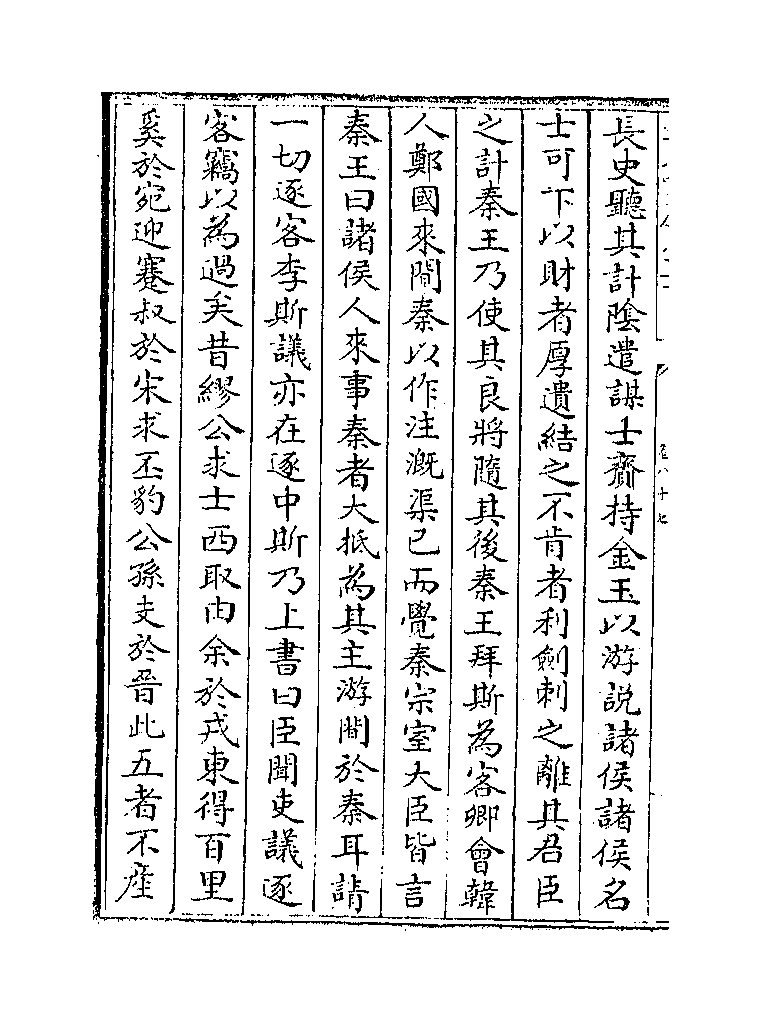 長史聽其計陰遣謀士齎持金玉以游説諸侯諸侯名
士可下以財者厚遺結之不肯者利劍刺之離其君臣
之計秦王乃使其良將隨其後秦王拜斯為客卿會韓
人鄭國來間秦以作注溉渠已而覺秦宗室大臣皆言
秦王曰諸侯人來事秦者大抵為其主游間於秦耳請
一切逐客李斯議亦在逐中斯乃上書曰臣聞吏議逐
客竊以為過矣昔繆公求士西取由余於戎東得百里
奚於宛迎蹇叔於宋求丕豹公孫支於晉此五者不産
卷八十七